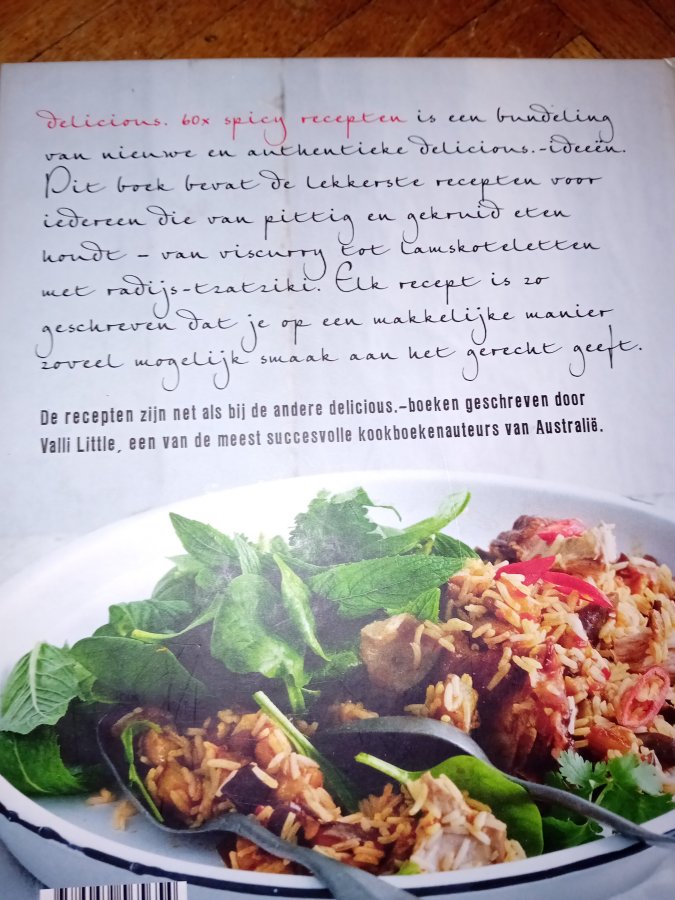 delicious. 60x spicy recepten is een bundeling
van nieuwe en authentieke delicious.-ideeën.
Dit boek bevat de lekkerste recepten voor
iedereen die van pittig en gekruid eten
houdt – van viscurry tot lamskoteletten
met radijs-tzatziki. Elk recept is zo
geschreven dat je op een makkelijke manier
zoveel mogelijk smaak aan het gerecht geeft.
De recepten zijn net als bij de andere delicious.-boeken geschreven door
Valli Little, een van de meest succesvolle kookboekenauteurs van Australië.